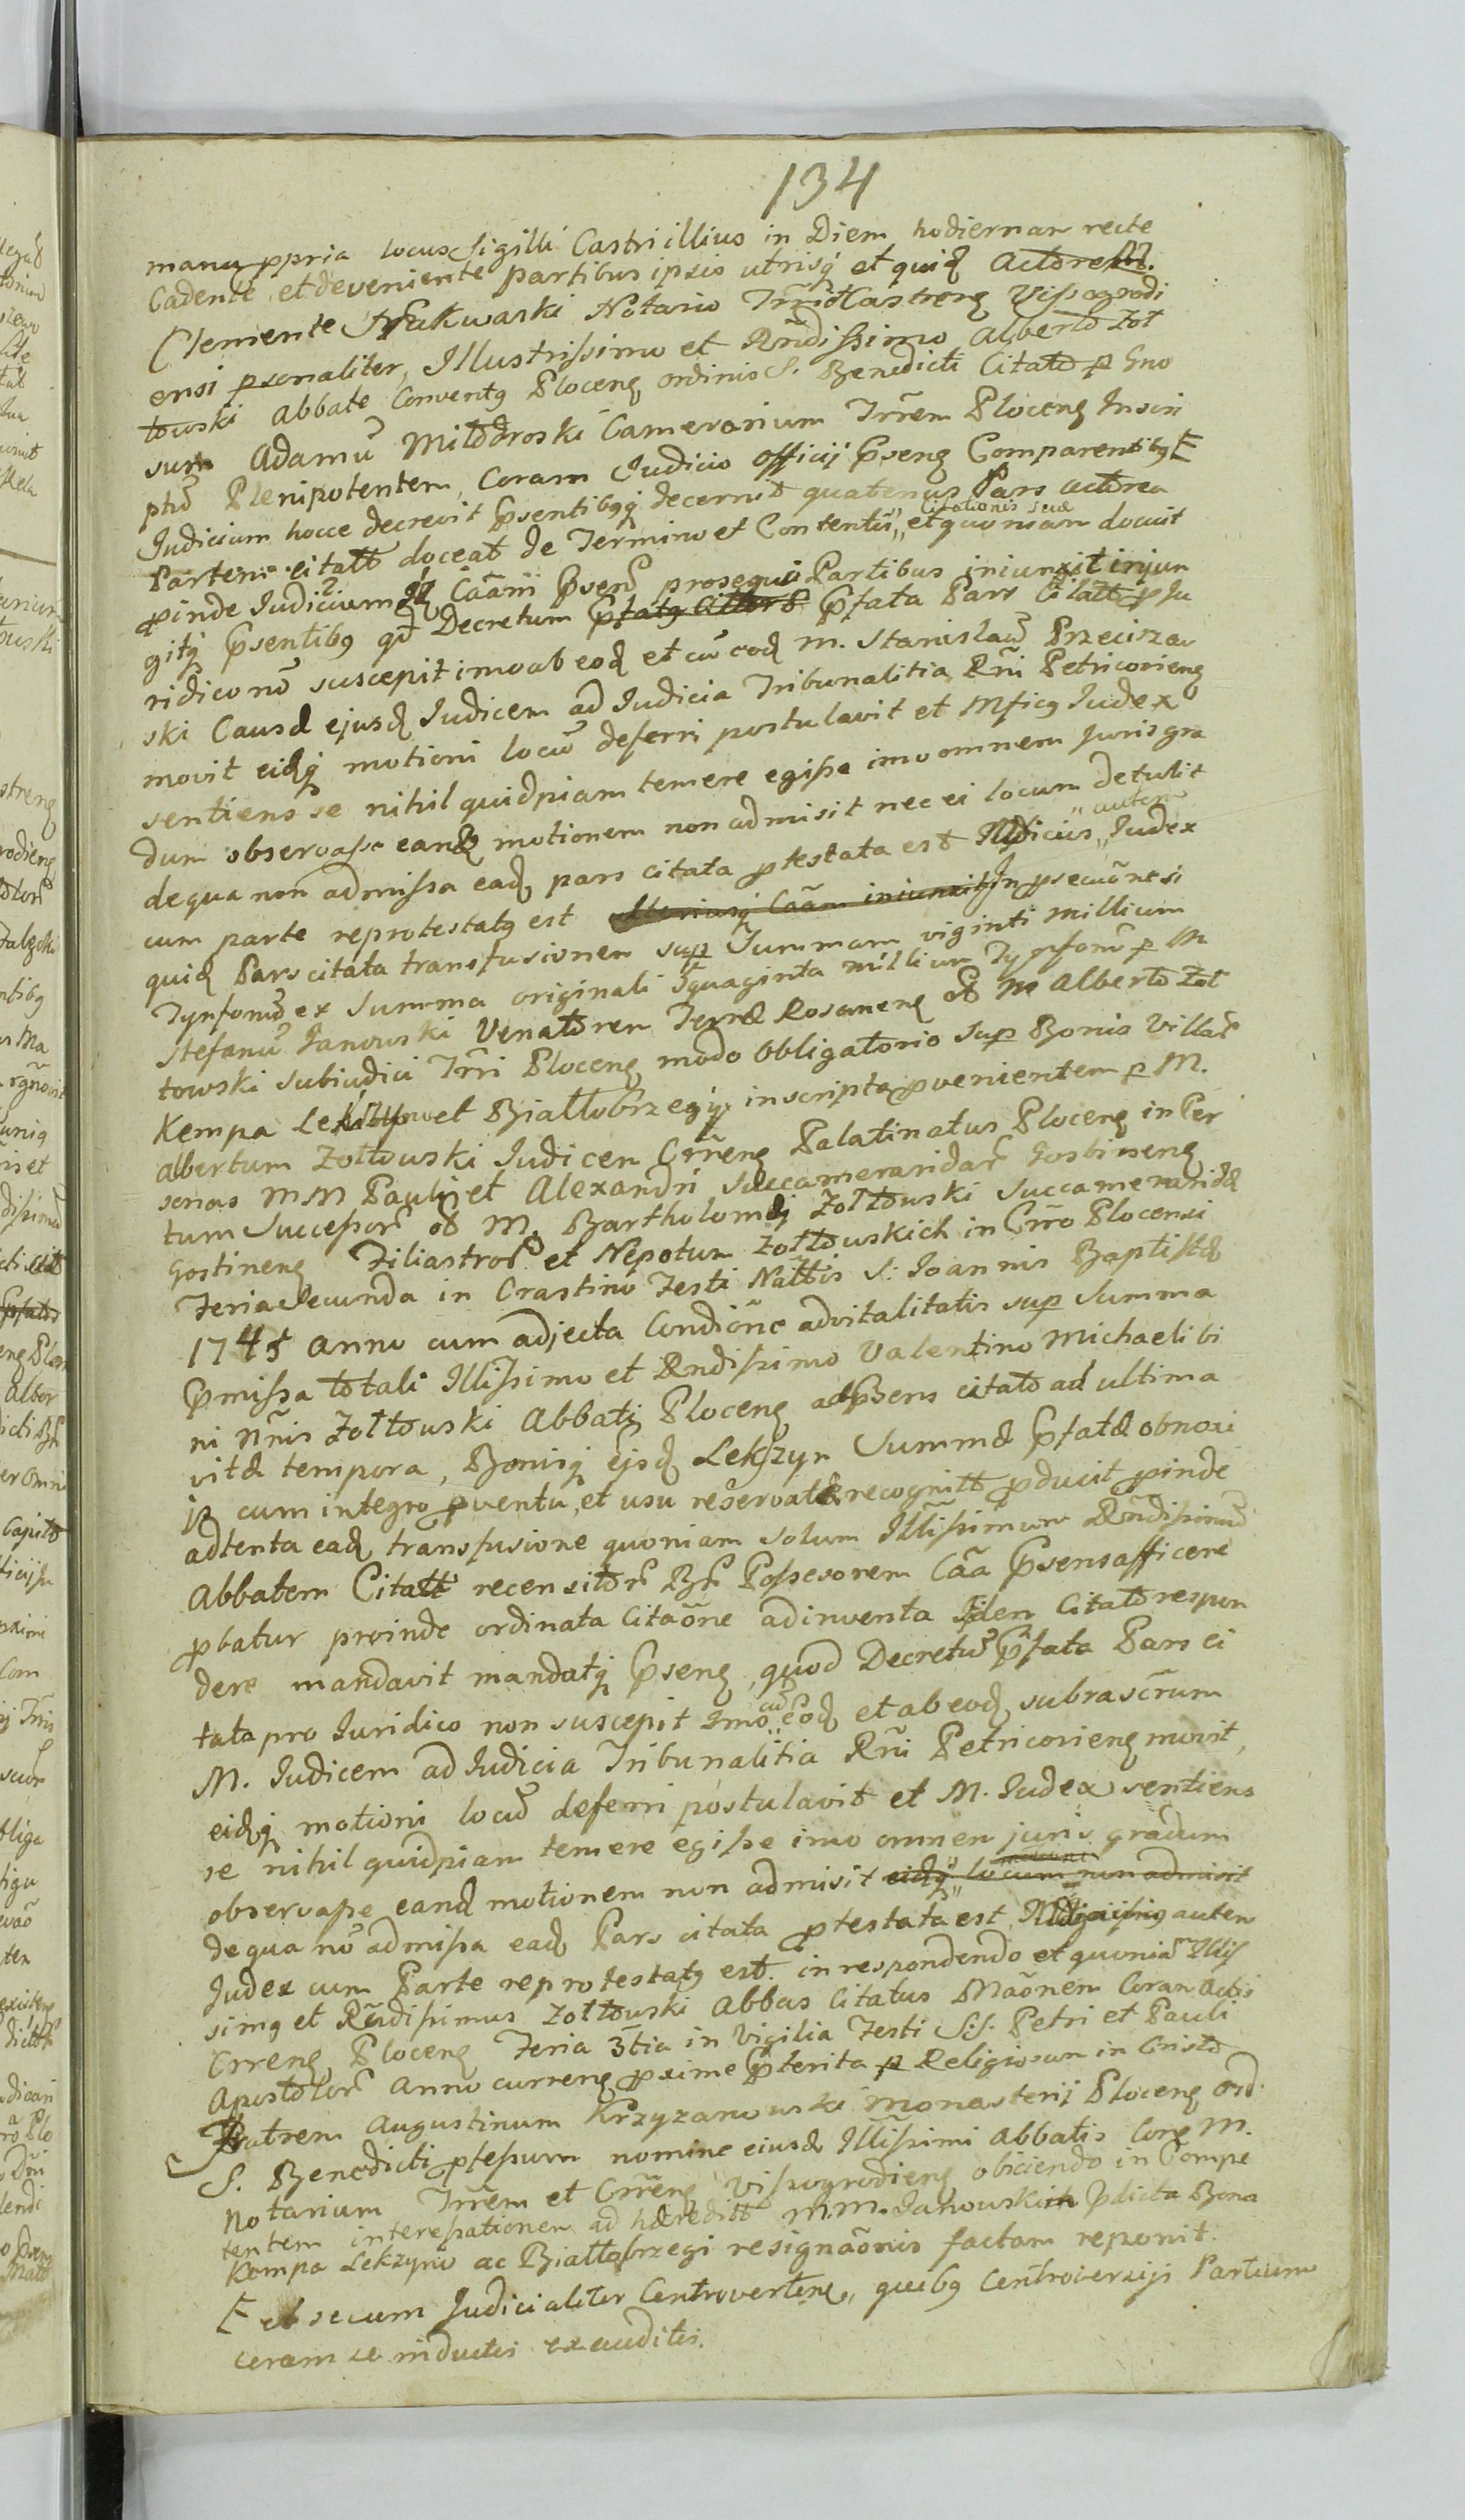 134
manu ppria locus Sigilli Castri illius in Diem hodiernam recte
Cadente, et deveniente partibus ipsis utrisq et quidē Actorea M.
Clemente Nakwaski Notario Trri et Castrenę Vissogrodi
ensi psonaliter, Illustrissimo et Rndissimo Alberto Zoł
towski Abbate Conventg Plocenę ordinis S. Benedicti Citato p Gno
sum Adamū Miłodroski Camerarium Trrem Plocenę Inscri
ptū Plenipotentem, Coram Judicio Officij Psenę Comparentibg E
Judicium hocce decrevit Psentibgq decernit quatenus Pars actorea
Partem citatt doceat de Termino et Contentū citationis suæ et quoniam docuit
pinde Judicium Caām Psen prosequi Partibus iniunxit injun
gitq Psentibg qd Decretum Pfata Pars Citatt p Ju
ridico nō suscepit imo ab eodē et cū eodē M. Stanislaū Przecisze
ski Causæ ejusdē Judicem ad Judicia Tribunalitia Rñi Petricovienę
movit eidēq motioni locū deferri postulavit et Mficg Judex
sentiens se nihil quidpiam temere egisse imo omnem Juris gra
dum observasse eandē motionem non admisit nec ei locum detulit
de qua non admissa eadē pars citata ptestata est autem Judex
cum parte reprotestatg est ulteriusq Caām iniunxit In psecuōne si
quidē Pars citata transfusionem sup Summam viginti millium
Tynfonū ex Summa originali millium Tynfonū p M
Stefanū Janowski Venatorem Terræ Rosanenę M Alberto Zoł
towski Subiudici Trri Plocenę modo Obligatorio Sup Bonis Villar
Kempa Lekszyno et Białłobrzegi inscripta pvenientem p M.
Albertum Zołtowski Judicem Crrenę Palatinatus Plocenę in Per
sonas MM Pauli et Alexandri Succameraridar Gostinenę
tum Successor M. Bartholomæi Zołtowski Succameraridæ
Gostinenę Filiastror et Nepotum Zołtowskich in Crro Plocensi
Feria Secunda in Crastino Festi Nattis S. Joannis Baptistæ
1745 Anno cum adjecta Condiōne advitalitatis sup Summa
Pmissa totali Illissimo et Rndissimo Valentino Michaeli bi
ni Nñis Zołtowski Abbati Plocenę ad Psens citato ad ultima
vitæ tempora, Bonisq ejsdē Lekszyn Summæ Pfatæ obnoxi
js cum integro pventu, et usu reservat recognitt pducit pinde
adtenta eadē transfusione quoniam solum Illissimum Rndissimū
Abbatem Citatt recensitor Br Possessorem Caā Psens afficere
pbatur proinde ordinata Citaōne adinventa Idem Citato respon
dere mandavit mandatq Psenę, quod Decretū Pfata Pars ci
tata pro Juridico non suscepit Imo cū eodē et ab eodē subrascrum
M. Judicem ad Judicia Tribunalitia Rñi Petricovienę movit,
eidēq motioni locū deferri postulavit et M. Judex sentiens
se nihil quidpiam temere egisse imo omnem juris gradum
observasse eandē motionem non admisit eidēq locum non admisit
de qua nō admissa eadē Pars citata ptestata est, autem
Judex cum Parte reprotestatg est. in respondendo et quoniā Illis
simg et Rndissimus Zołtowski Abbas Citatus Maōnem Coram Actis
Crrenę Plocenę Feria 3tia in Vigilia Festi S.S. Petri et Pauli
Apostolor Anno currenę pxime Pterita p Religiosum in Cristo
Fratrem Augustinum Krzyzanowski Monasterij Plocenę Ord.
S. Benedicti pfessum nomine eiusdē Illissimi Abbatis Corę M.
Notarium Trrem et Crrenę Vissogrodienę obiciendo in Compe
tentem interessationem ad hæreditt M.M. Janowskich Pdicta Bona
Kempa Lekzyno ac Białłobrzegi resignaōnis factam reponit.
E et secum Judicialiter Controverten, quibg Controversijs Partium
coram se inductis exauditis.